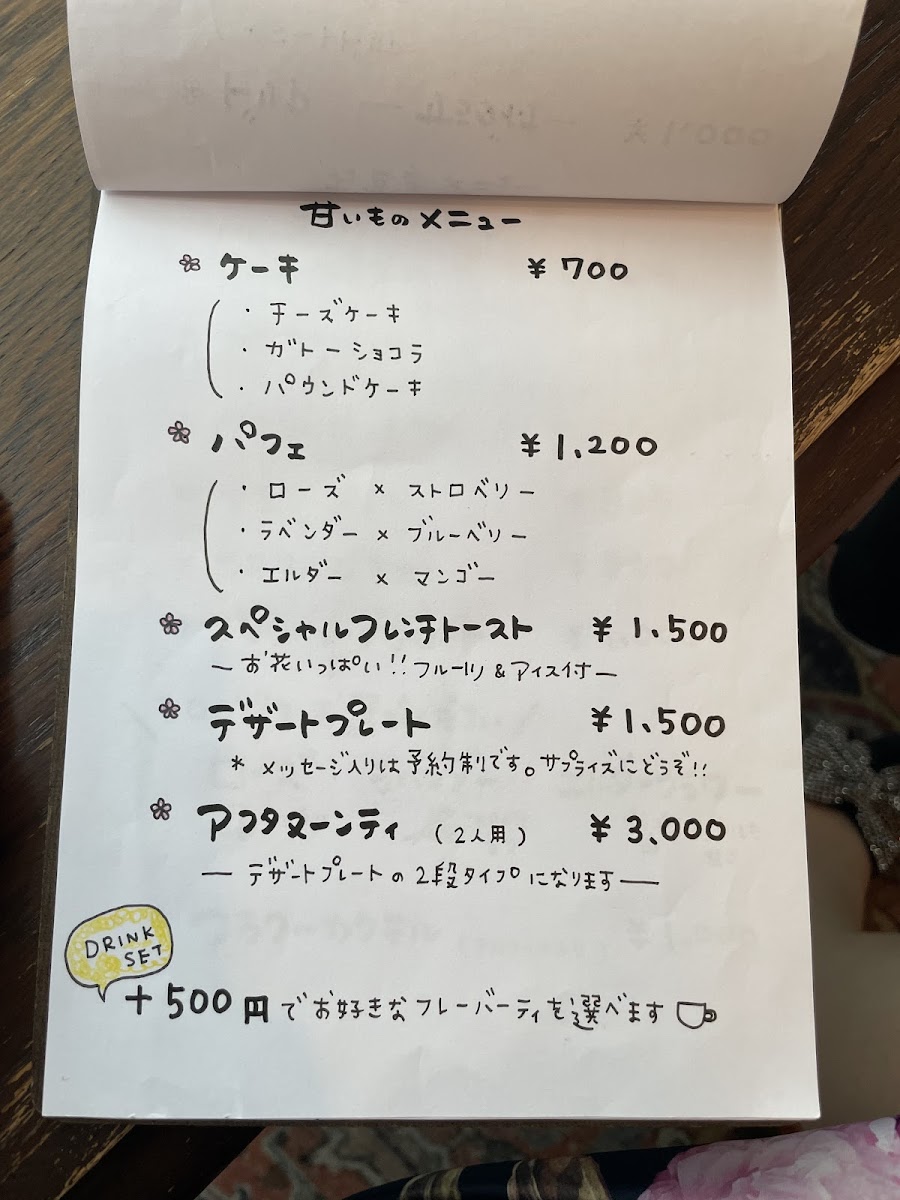 甘いものメニュー
ケーキ ¥700
・チーズケーキ
・ガトーショコラ
・パウンドケーキ
パフェ ¥1,200
・ローズ × ストロベリー
・ラベンダー × ブルーベリー
・エルダー × マンゴー
スペシャルフレンチトースト ¥1,500
ーお花いっぱい!!フルーツ&アイス付ー
デザートプレート ¥1,500
* メッセージ入りは予約制です。サプライズにどうぞ!!
アフタヌーンティ (2人用) ¥3,000
ーデザートプレートの2段タイプになりますー
DRINK
SET
+500円でお好きなフレーバーティを選べます